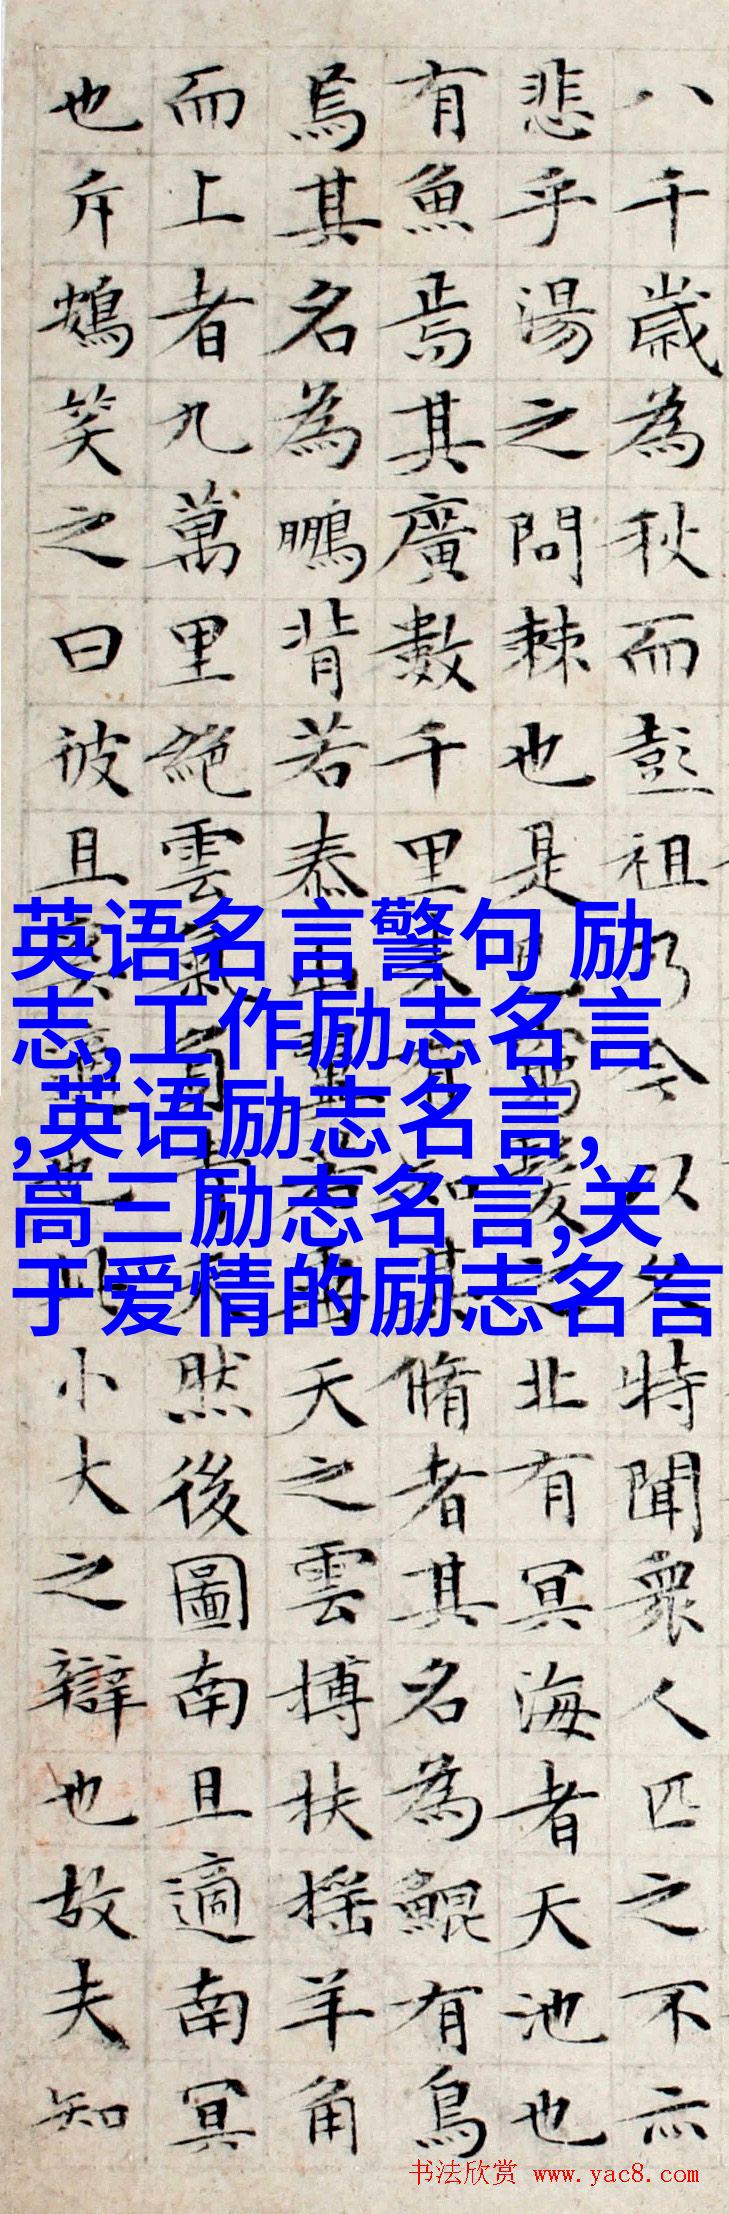 八千歲為秋而彭祖乃今以久特聞衆人匹之不亦
悲乎湯之問棘也是已窮髮之北有冥海者天池也
有魚焉其廣數千里未有知其脩者其名為鯤有鳥
焉其名為鵬背若泰山翼若垂天之雲搏扶摇羊角
而上者九萬里絕雲氣負青天然後圖南且適南冥
也斥鴳笑之曰彼且奚適也此小大之辯也故夫知
英语名言警句 励
志,工作励志名言
,英语励志名言,
高三励志名言,关
于爱情的励志名言
书法欣赏 www.yac8.com